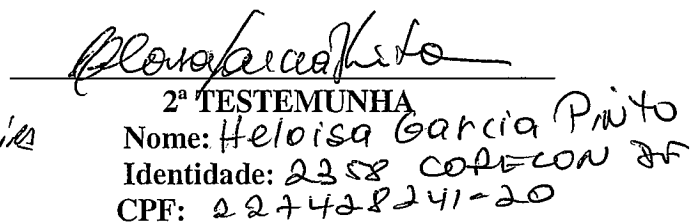 2ª TESTEMUNHA
Nome: Heloisa Garcia Pinto
Identidade: 2358 CORECON DF
CPF: 227428241-20